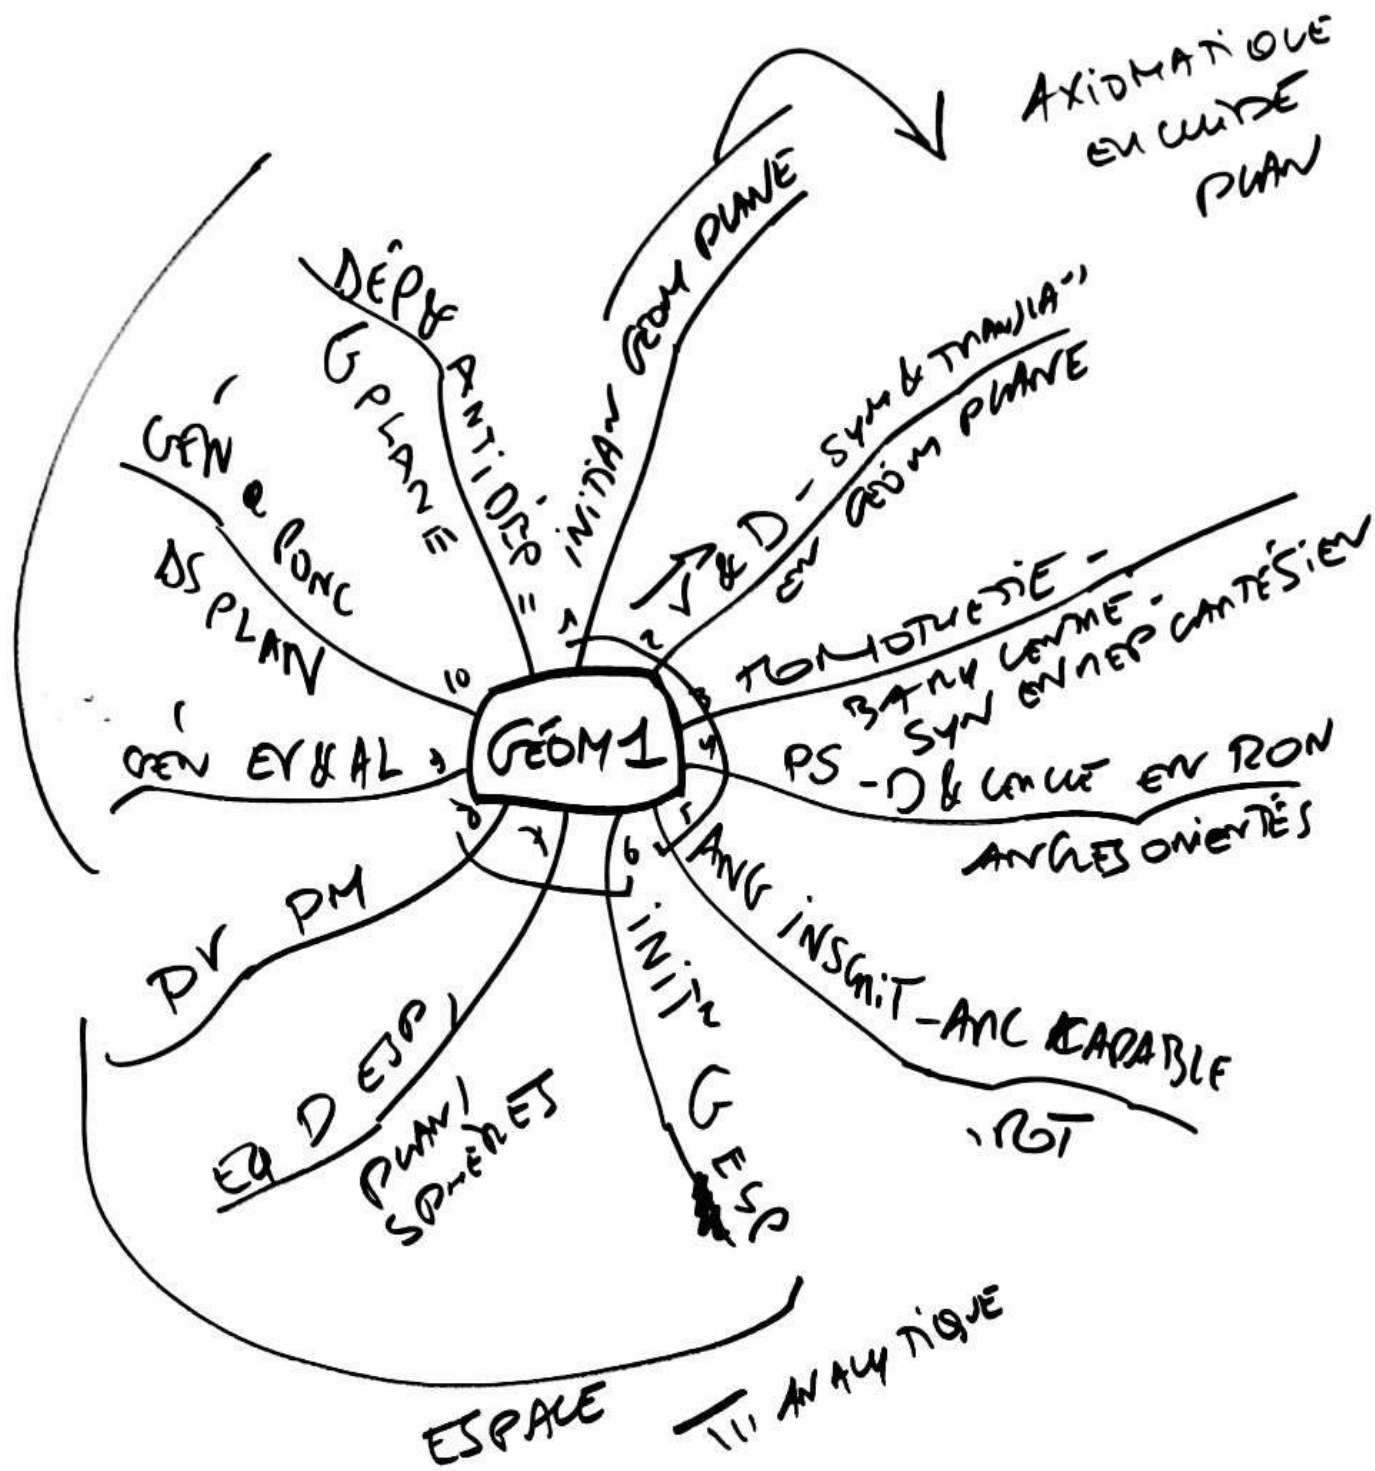 GÉOM 1
1
GÉOM PLANE
AXIOMATIQUE
EUCLIDE
PLAN
2
V & D - SYM & TRANSLAT°
EN GÉOM PLANE
3
HOMOTHETIE -
BARYCENTRE -
SYN EN REP CARTÉSIEN
4
PS - D & CERCLE EN RON
ANGLES ORIENTÉS
5
ANG INSCRIT - ARC CAPABLE
ROT
6
INIT° G ESP
7
EQ D ESP,
PLAN,
SPHÈRES
8
PV PM
9
GÉN EV & AL
10
GÉN
PONC
DS PLAN
11
DÉP & ANTIDÉP
G PLANE
ESPACE
ANALYTIQUE